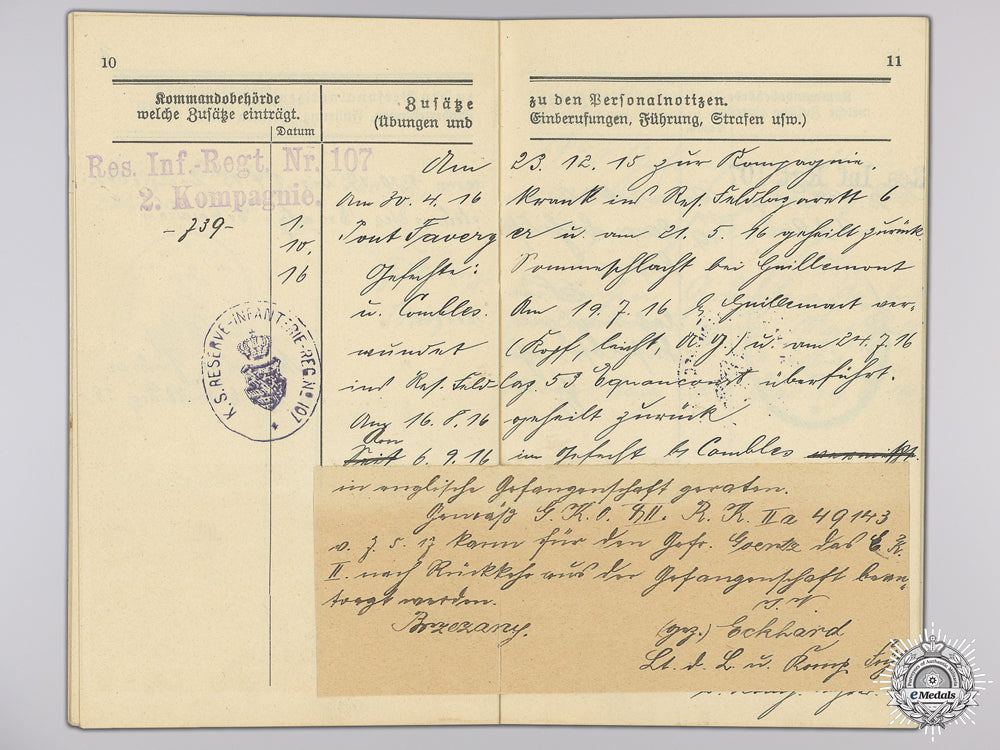 10
11
Kommandobehörde
welche Zusätze einträgt.
Datum
Zusätze zu den Personalnotizen.
(Übungen und Einberufungen, Führung, Strafen usw.)
Res. Inf.-Regt. Nr. 107
2. Kompagnie.
- 739 -
1.
10.
16
K. S. RESERVE-INFANTERIE-REG. No 107
Am 23. 12. 15 zur Kompagnie.
Am 30. 4. 16 krank ins Res. Feldlazarett 6
er u. am 21. 5. 16 geheilt zurück.
Gefechte: Sommeschlacht bei Guillemont
u. Combles. Am 19. 7. 16 Guillemont ver-
wundet (Kopf, leicht, A. G.) u. am 24.7.16
ins Res. Feldlaz 53 überführt.
Am 16. 8. 16 geheilt zurück
Am
Seit 6. 9. 16 im Gefecht b. Combles vermißt.
in englische Gefangenschaft geraten.
Gemäß G. K. O. R. K. IIa 49143
v. 7. 5. 17 kann für den Gefr. das E. K.
II. nach Rückkehr aus der Gefangenschaft bean-
tragt werden.
Brzezany.
(gez.) Eckhard
Lt. d. L. u. Komp
eMedals